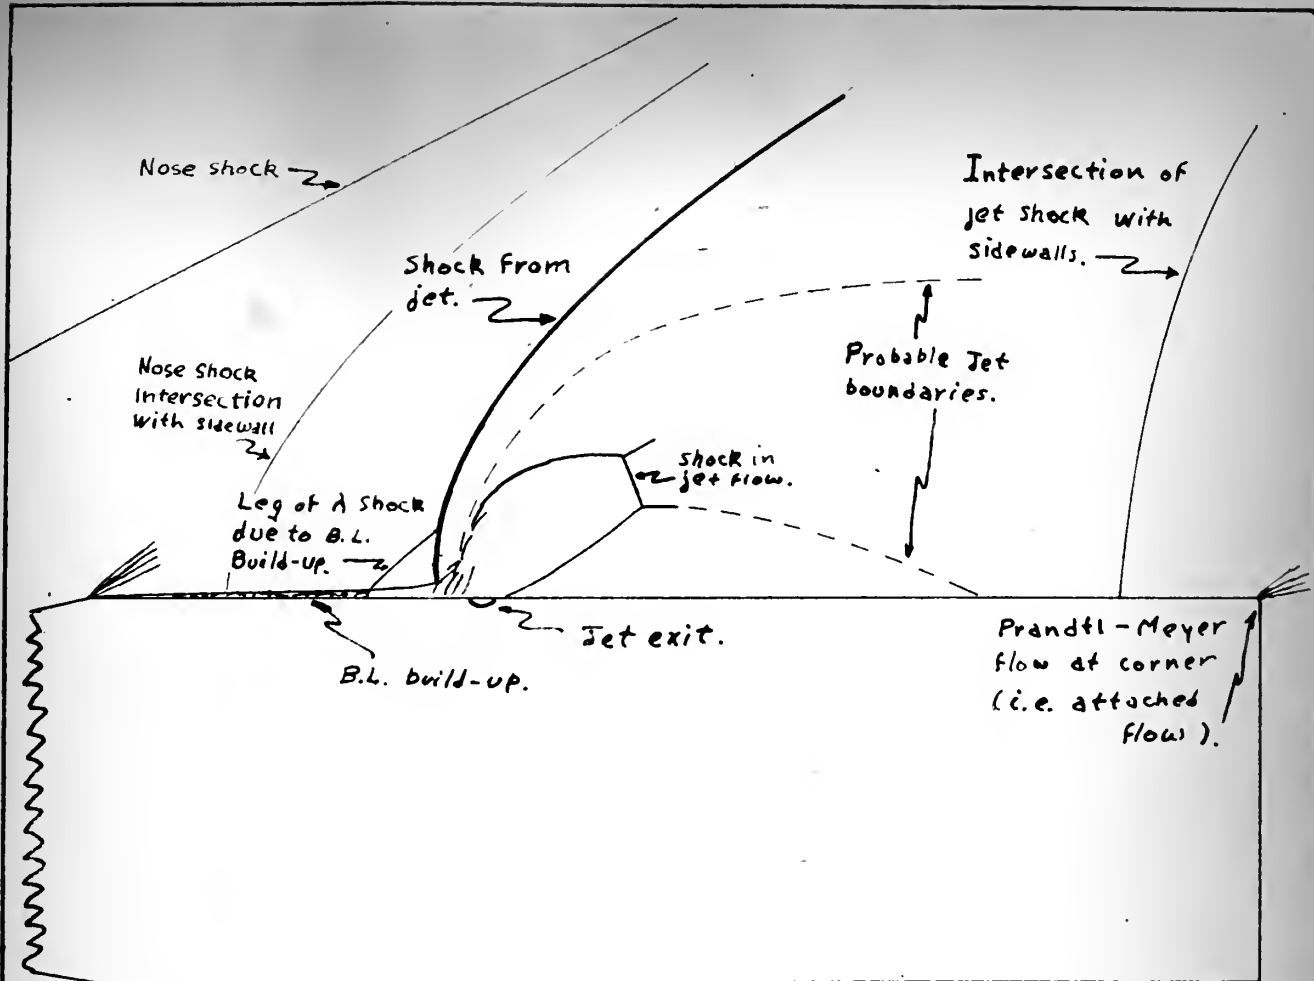 Nose shock
Intersection of
jet shock with
sidewalls.
Shock from
jet.
Probable Jet
boundaries.
Nose shock
Intersection
with sidewall
shock in
jet flow.
Leg of λ shock
due to B.L.
Build-up.
Jet exit.
B.L. build-up.
Prandtl-Meyer
flow at corner
(i.e. attached
flow).